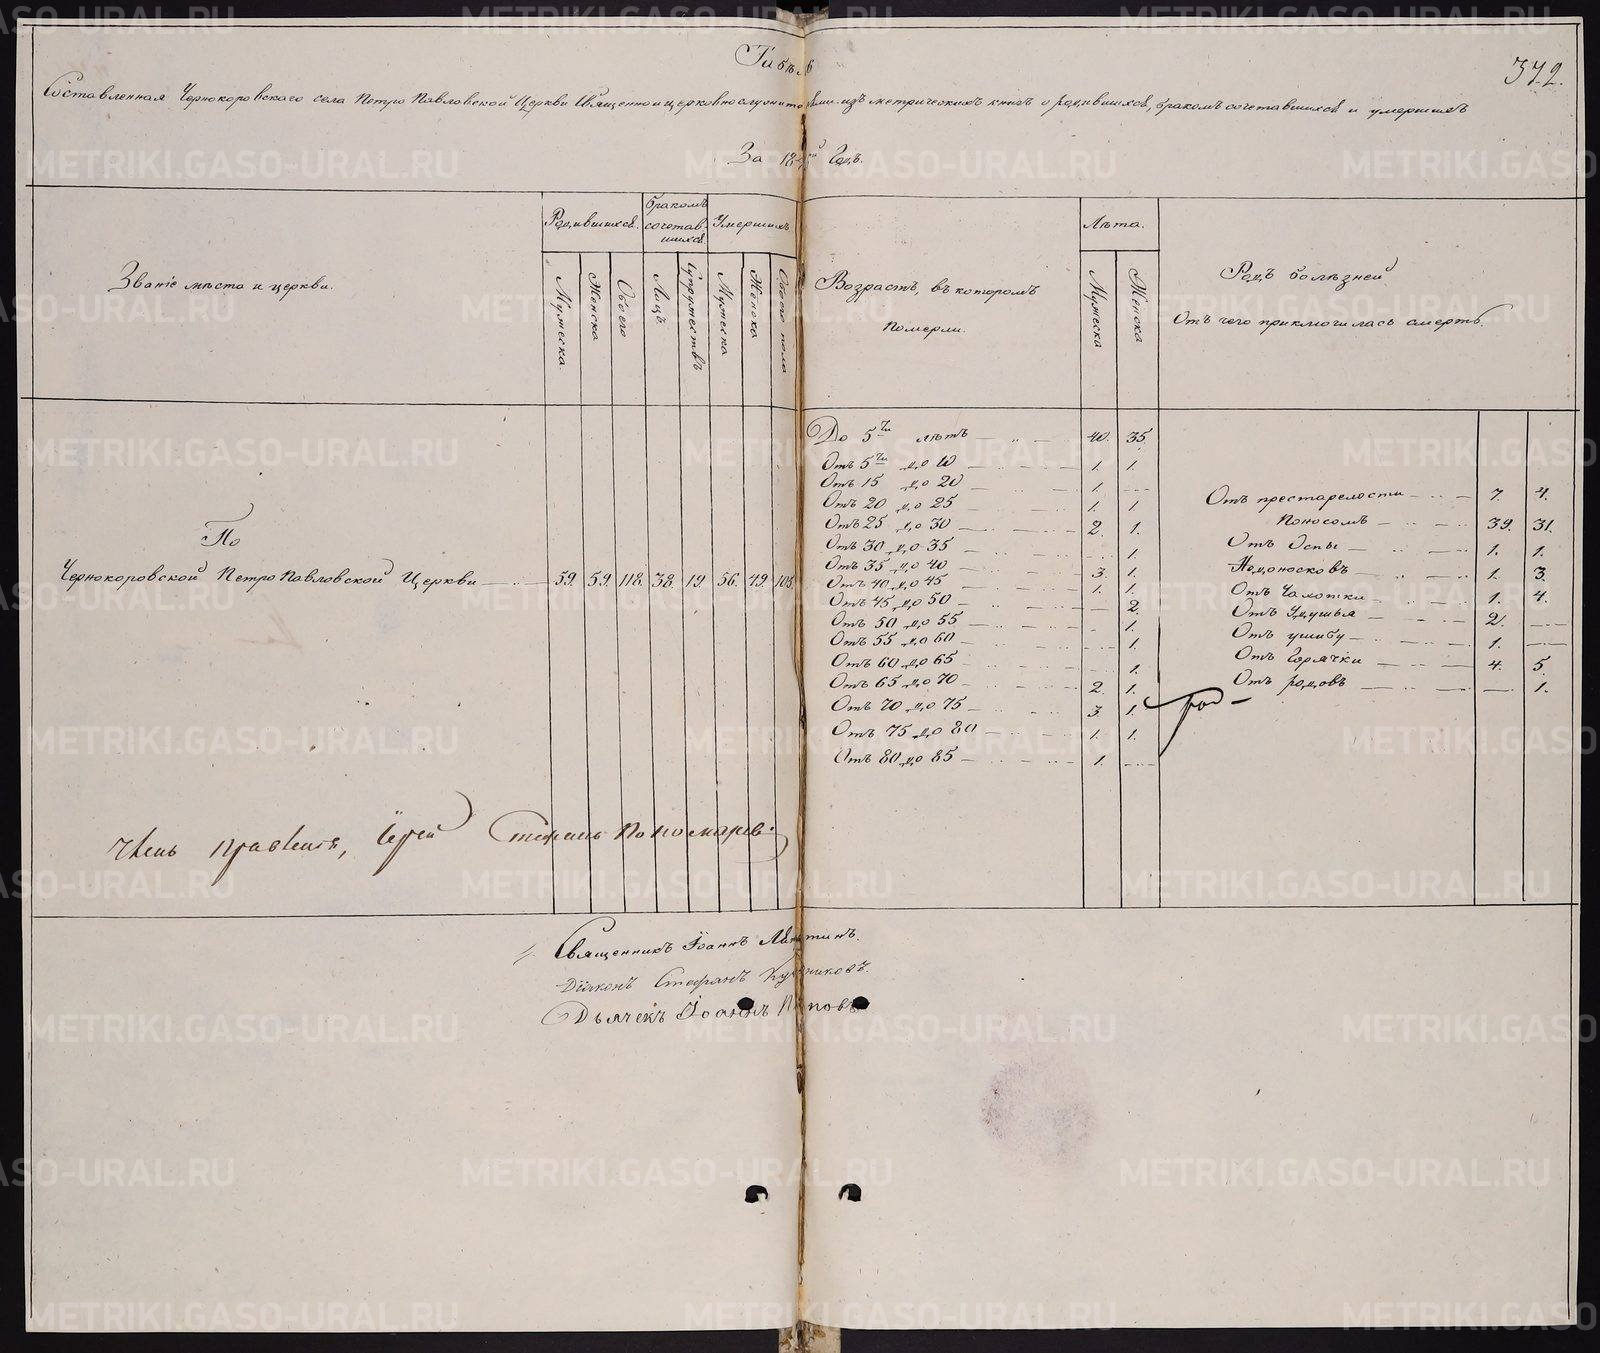 372.
Табель
Составленная Чернокоровскаго села Петро Павловской Церкви Священно и церковнослужителями изъ метрическихъ книгъ о родившихся, бракомъ сочетавшихся и умершихъ
За 18 Годъ.
Званіе мѣста и церкви.
Родившихся.
бракомъ сочетавшихся
Умершихъ
Мужеска.
Женска
Обоего
Лицъ.
Супружествъ
Мужеска
Женска
Обоего пола
Возрастъ, въ которомъ
померли.
Лѣта.
Мужеска
Женска
Родъ болѣзней
Отъ чего приключилась смерть.
По
Чернокоровской Петро Павловской Церкви 59. 59. 118. 38. 19 56. 49. 105.
До 5ти лѣтъ 40. 35.
Отъ 5ти до 10 1. 1.
Отъ 15 до 20 1.
Отъ 20 до 25 1. 1
Отъ 25 до 30 2. 1.
Отъ 30 до 35 1.
Отъ 35 до 40 3. 1.
Отъ 40 до 45 1. 1.
Отъ 45 до 50 2.
Отъ 50 до 55 1.
Отъ 55 до 60 1.
Отъ 60 до 65 1.
Отъ 65 до 70 2. 1.
Отъ 70 до 75 3. 1.
Отъ 75 до 80 1. 1.
Отъ 80 до 85 1.
Отъ престарелости 7. 4.
Поносомъ 39. 31.
Отъ Оспы 1. 1.
Недоносковъ 1. 3.
Отъ Чахотки 1. 4.
Отъ Удушья 2.
Отъ ушибу 1.
Отъ Горячки 4. 5.
Отъ родовъ 1.
Членъ правленія, Іерей Стефанъ Пономаревъ.
Священникъ Іоаннъ
Діаконъ Стефанъ
Дьячекъ Іоаннъ Поповъ
METRIKI.GASO-URAL.RU